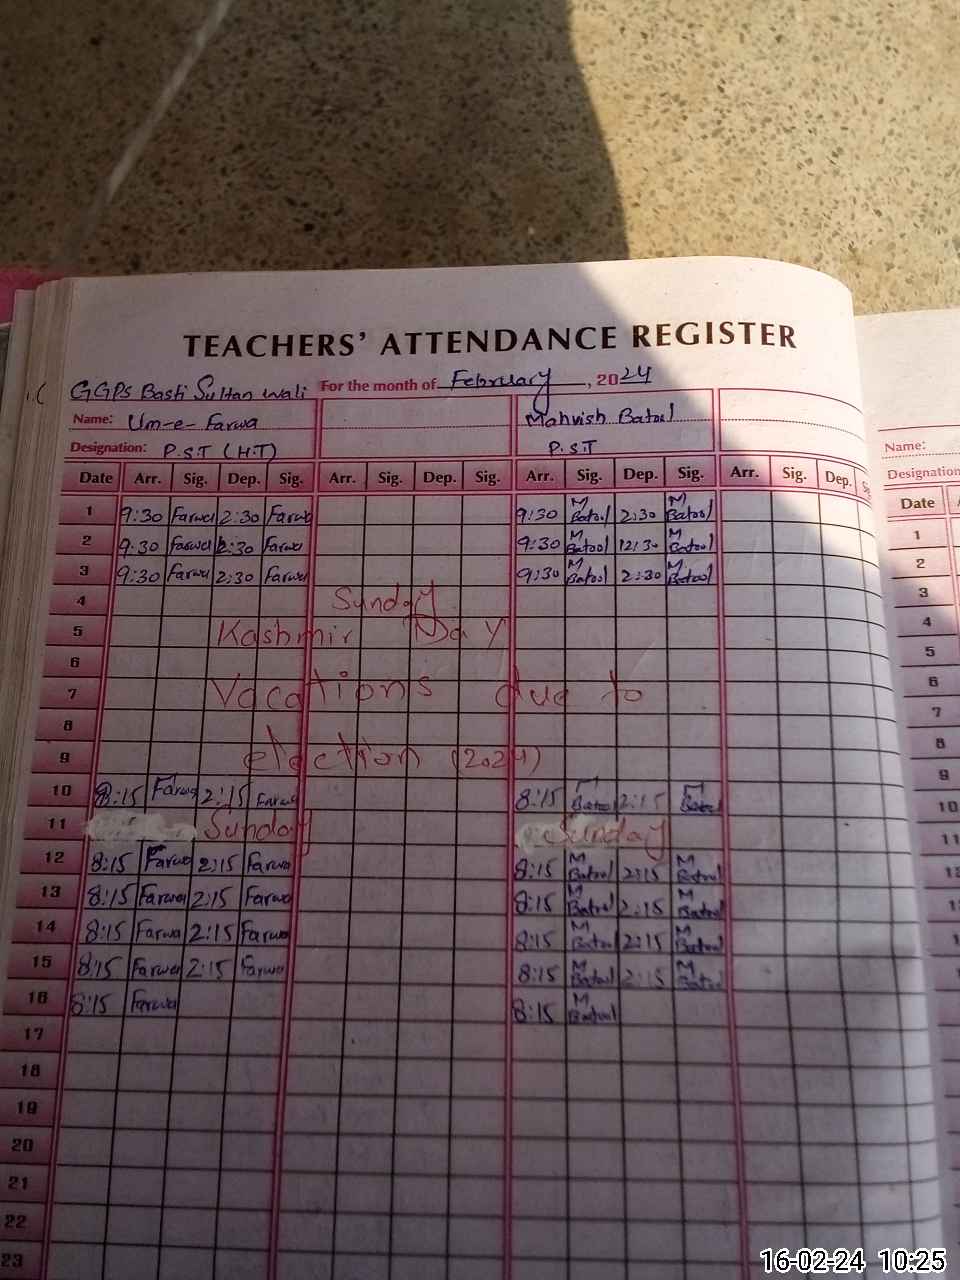 TEACHERS' ATTENDANCE REGISTER
GGPS Basti Sultan wali For the month of February, 2024
Name: Um-e-Farwa Mahvish Batool Name:
Designation: P.S.T (H.T) P.S.T Designation
Date Arr. Sig. Dep. Sig. Arr. Sig. Dep. Sig. Arr. Sig. Dep. Sig. Arr. Sig. Dep. Date
1 9:30 Farwa 2:30 Farwa 9:30 M Batool 2:30 M Batool 1
2 9:30 Farwa 2:30 Farwa 9:30 M Batool 12:30 M Batool 2
3 9:30 Farwa 2:30 Farwa 9:30 M Batool 2:30 M Batool 3
4 Sunday 4
5 Kashmir Day 5
6 6
7 Vacations due to 7
8 8
9 election (2024) 9
10 8:15 Farwa 2:15 Farwa 8:15 M Batol 2:15 M Batol 10
11 Sunday Sunday 11
12 8:15 Farwa 2:15 Farwa 8:15 M Batool 2:15 M Batool
13 8:15 Farwa 2:15 Farwa 8:15 M Batool 2:15 M Batool
14 8:15 Farwa 2:15 Farwa 8:15 M Batool 2:15 M Batool
15 8:15 Farwa 2:15 Farwa 8:15 M Batool 2:15 M Batool
16 8:15 Farwa 8:15 M Batool
17
18
19
20
21
22
23
16-02-24 10:25